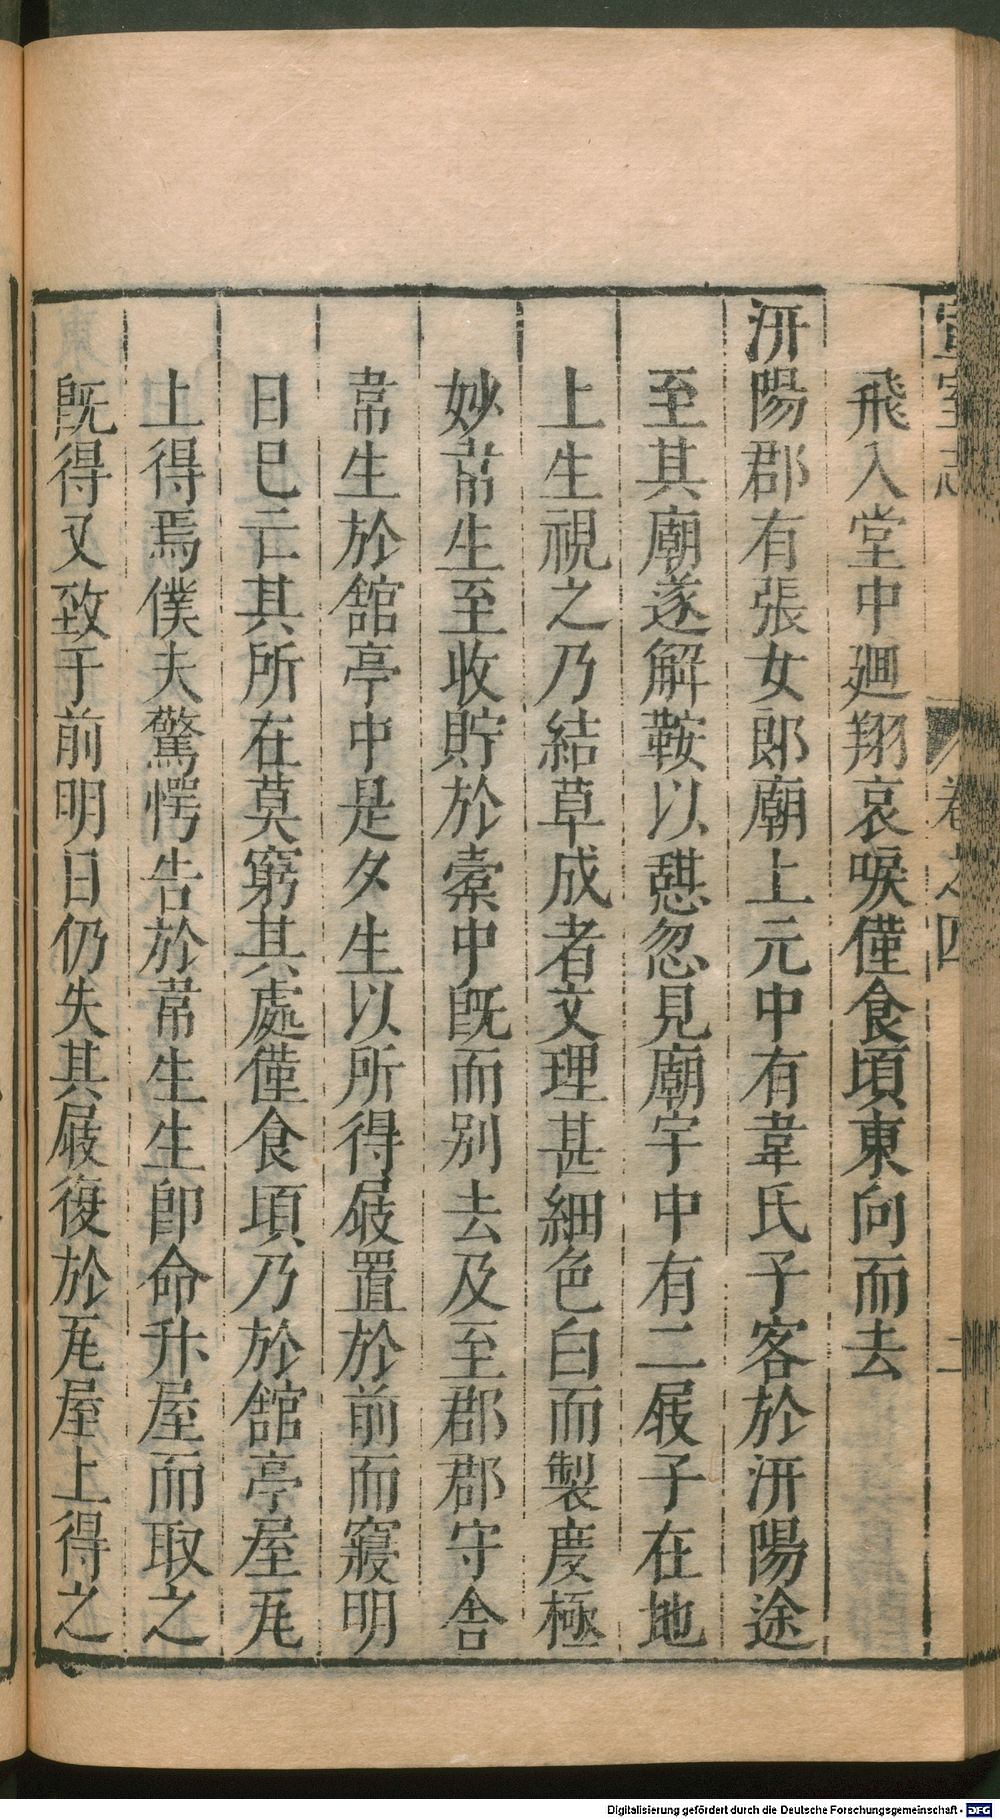 宣室志 卷之四 二
飛入堂中廻翔哀唳僅食頃東向而去
汧陽郡有張女郎廟上元中有韋氏子客於汧陽途
至其廟遂解鞍以憇忽見廟宇中有二屐子在地
上生視之乃結草成者文理甚細色白而製度極
妙韋生至收貯於橐中旣而別去及至郡郡守舍
韋生於舘亭中是夕生以所得屐置於前而寢明
日已亡其所在莫窮其處僅食頃乃於舘亭屋瓦
上得焉僕夫驚愕告於韋生生卽命升屋而取之
旣得又致于前明日仍失其屐復於瓦屋上得之
Digitalisierung gefördert durch die Deutsche Forschungsgemeinschaft - DFG